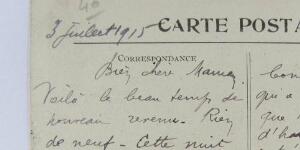 40
3 juillet 1915
CARTE POSTA
CORRESPONDANCE
Bien chère Maman
Voilà le beau temps de
nouveau revenu. Rien
de neuf. Cette nuit
qu'a
que
d'ha